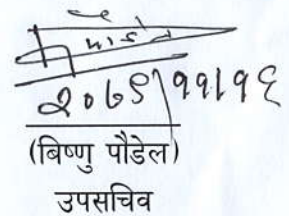 २०७९।११।१६
(बिष्णु पौडेल)
उपसचिव